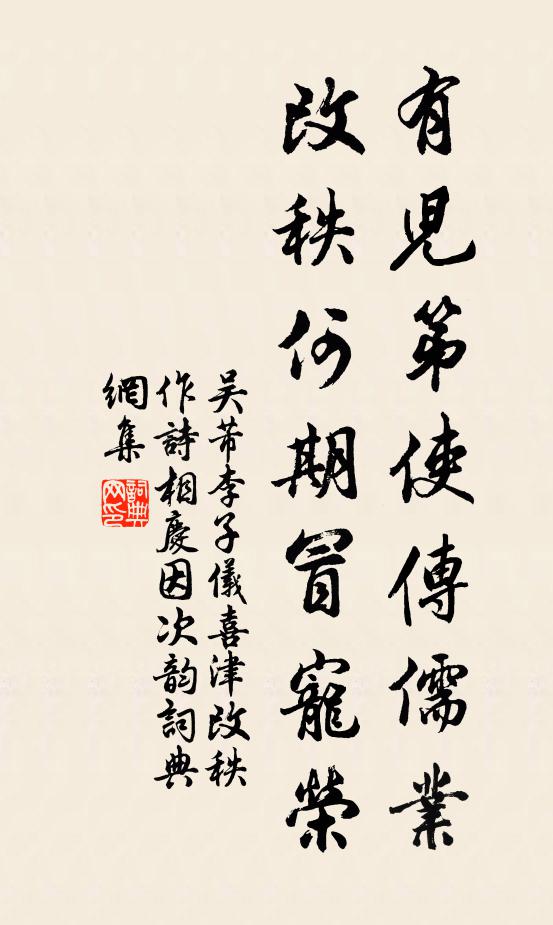 有兒第使傳儒業
改秩何期冒寵榮
吴芾李子儀喜津改秩
作詩相慶因次韵詞典
網集
詞典
网印